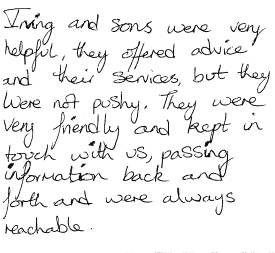 Irving and sons were very
helpful, they offered advice
and their services, but they
were not pushy. They were
very friendly and kept in
touch with us, passing
information back and
forth and were always
reachable.